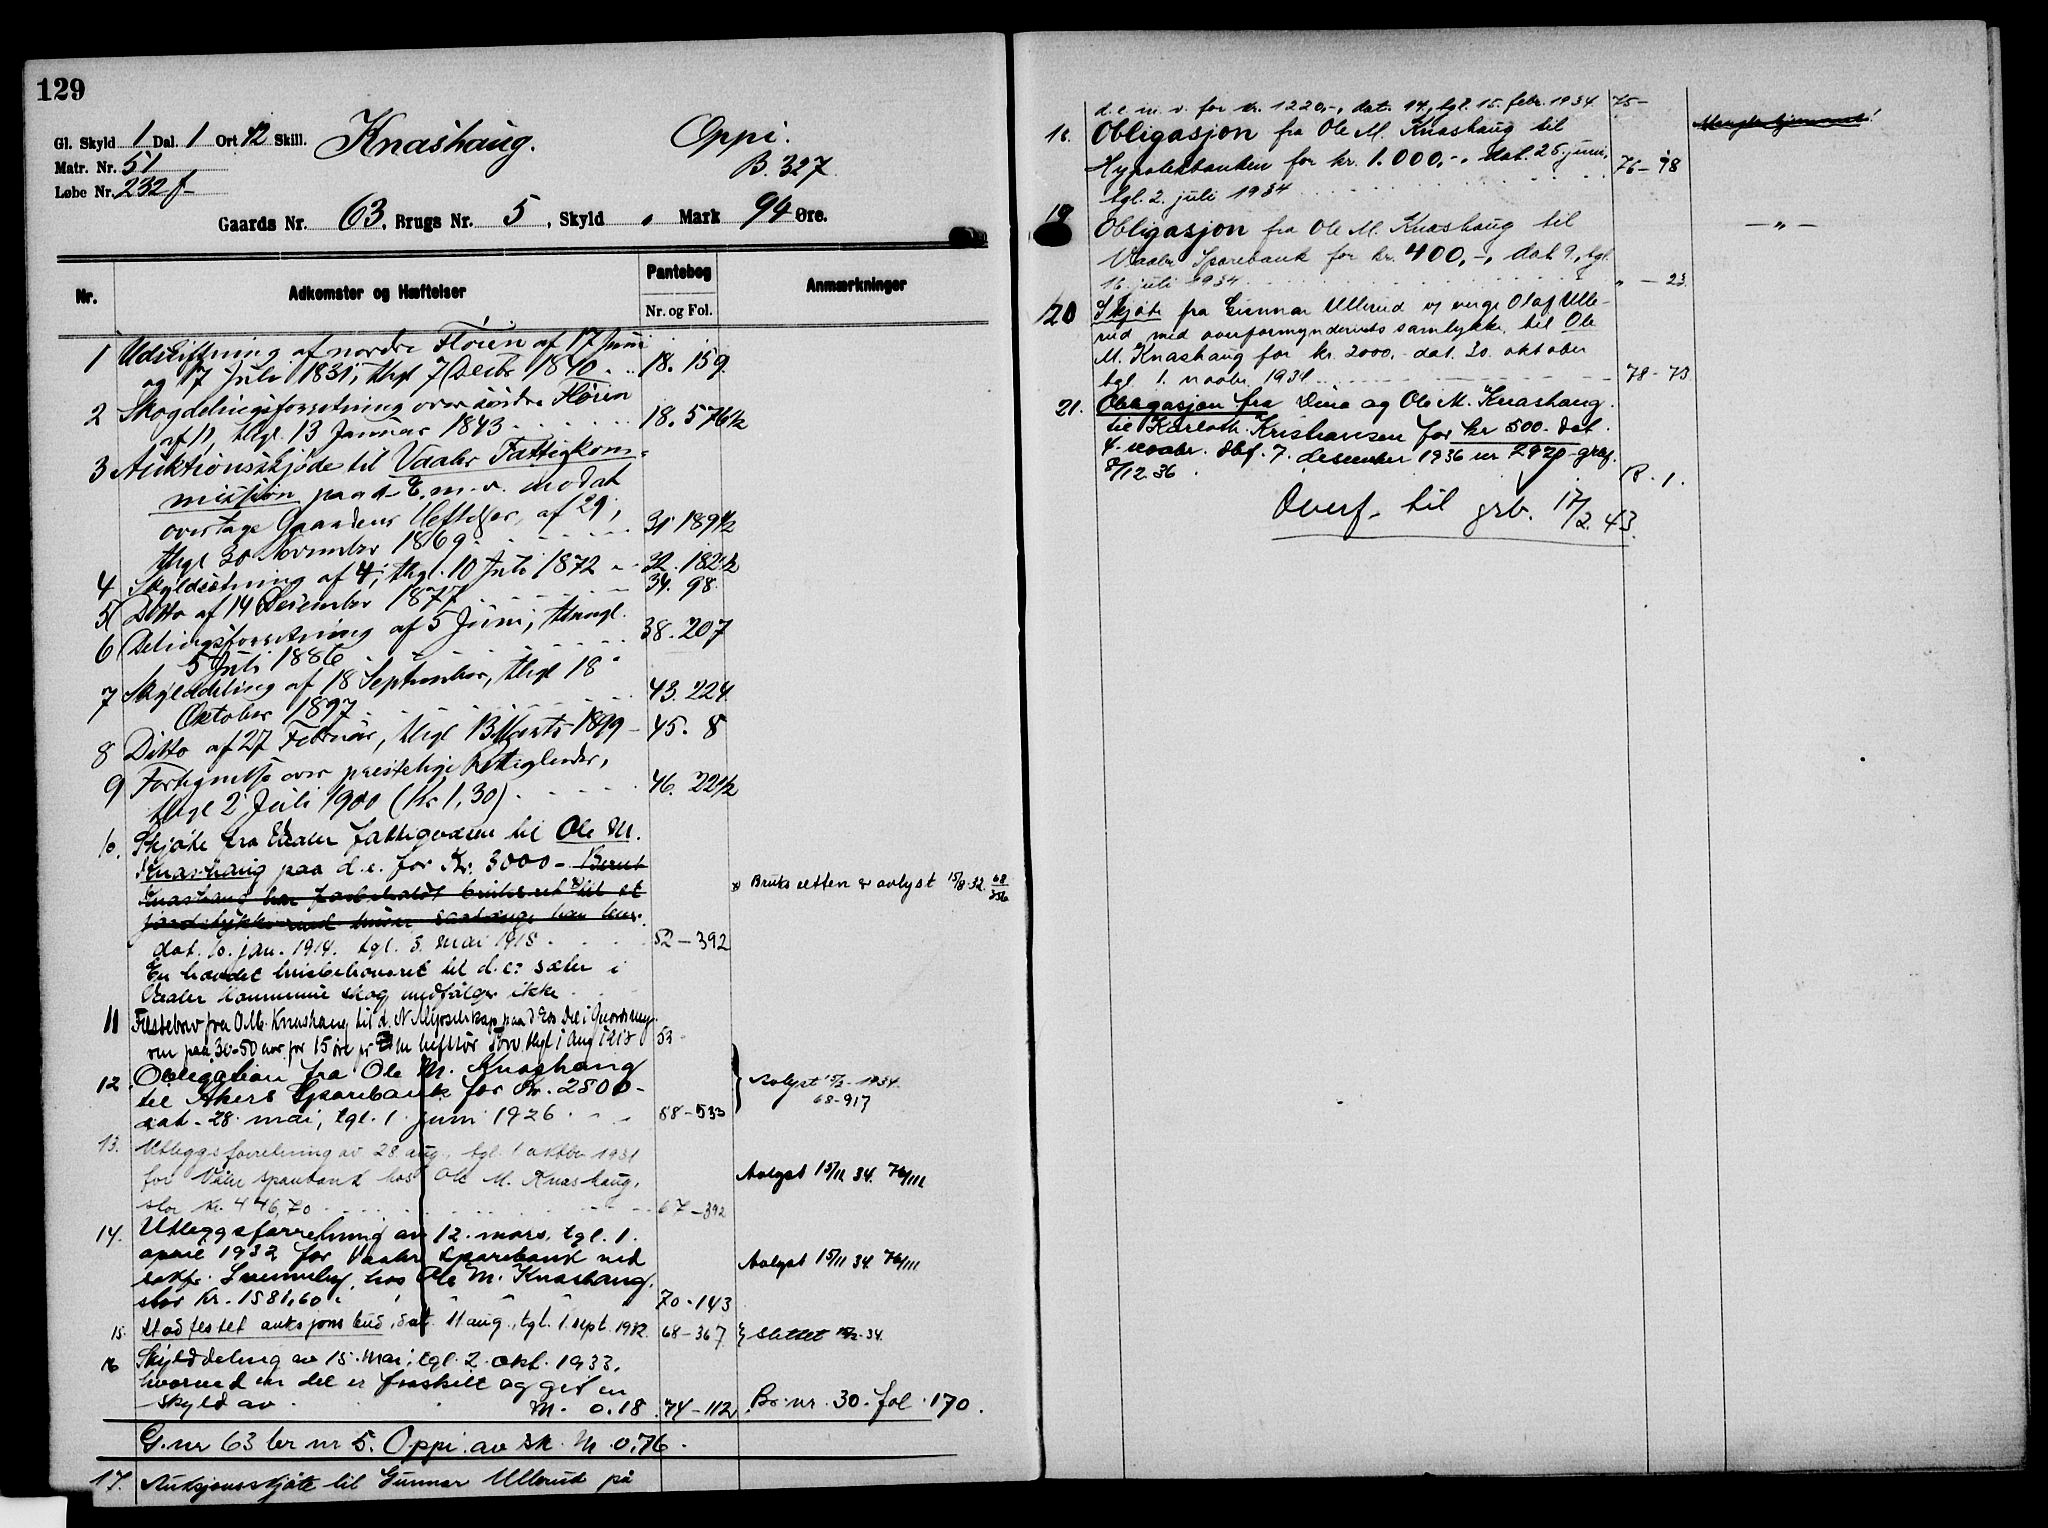 129
Gl. Skyld 1 Dal. 1 Ort 12 Skill. Knashaug. Oppi.
Matr. Nr. 51 B. 327
Løbe Nr. 232 f
Gaards Nr. 63, Brugs Nr. 5, Skyld " Mark 94 Øre.
Nr. Adkomster og Hæftelser Pantebog Anmærkninger
Nr. og Fol.
1 Udskiftning af nordre Fløien af 17 Juni
og 7 Juli 1831, thgl 7 Decbr 1840 18. 159
2 Skogdelingsforretning over søndre Fløien
af 11, thgl. 13 Januar 1843 18. 576½
3 Auktionsskjøde til Vaaler Fattigkom-
mission paa d. E. m. v. mod at
overtage Gaardens Heftelser, af 29,
thgl 30 November 1869 31 189½
4 Skyldsætning af 4, thgl. 10 Juli 1872 32. 182½
5 Ditto af 14 Desember 1877 34. 98.
6 Delingsforretning af 5 Juni, thingl.
5 Juli 1886 38. 207
7 Skylddeling af 18 September, thgl 18
Oktober 1897 43. 224
8 Ditto af 27 Februar, thgl 13 Marts 1899 45. 8
9 Fortegnelse over præstelige Rettigheder,
thgl 2 Juli 1900 (Kr 1,30) 46. 22½
10. Skjøte fra Vaaler fattigvæsen til Ole M.
Knashaug paa d. e. for Kr. 3000 - Bernt
Knashaug har forbeholdt bruksret til et
jordstykke saalænge han lever.
x Bruksretten er avlyst 15/8-32. 68/356
dat. 10. jan. 1914. tgl. 3. mai 1915 52-392
En hævdet bruksret til d. e: sæter i
Vaaler kommune skog medfølger ikke
11 Festebrev fra O. M. Knashaug til
paa 30-50 aar for 15 øre pr 53
12. Obligation fra Ole M. Knashaug
til Akers Sparebank for Kr. 2500-
dat. 28. mai, tgl. 1. juni 1926 58-533
Avlyst 15/2-1934.
68-917
13. Utleggsforretning av 28 aug, tgl. 1 oktbr 1931
for Våler sparebank hos Ole M. Knashaug,
stor kr. 446,70 67-392
Avlyst 15/11 34. 76/111
14. Utleggsforretning av 12. mars, tgl. 1.
april 1932 for Vaaler Sparebank ved
sakf. hos Ole M. Knashaug.
stor kr. 1581,60 70-143
Avlyst 15/11 34 76/111
15. Stadfestet auksjonsbud, dat. 11 aug., tgl. 1. sept. 1932. 68-367 slettet 15/2-34.
16 Skylddeling av 15. mai, tgl. 2. okt. 1933,
hvorved en del er fraskilt og git en
skyld av M. 0.18 74-112 Br. nr. 30. fol. 170.
G. nr 63 br nr 5. Oppi. av sk. M 0,76.
17. Auksjonsskjøte til Gunnar Ullerud på
d. e. m. v. for kr. 1220,-, dat. 14, tgl. 15. febr. 1934 75-
18. Obligasjon fra Ole M. Knashaug til
Hypotekbanken for kr. 1.000,-, dat. 25. juni,
tgl. 2. juli 1934 76-98
19 Obligasjon fra Ole M. Knashaug til
Vaaler Sparebank for kr. 400,-, dat 9., tgl.
16. juli 1934 " - 23
- " -
20 Skjøte fra Gunnar Ullerud og verge Olaf Ulle-
rud, med overformynderiets samtykke, til Ole
M. Knashaug for kr. 2000.- dat. 30. oktober
tgl. 1. novbr. 1934 78-73
21. Obligasjon fra Dina og Ole M. Knashaug
til Kristiansen for kr 500.- dat.
4. novbr. dbf. 7. desember 1936 nr 2920
8/12.36 R. 1.
Overf. til grb. 17/2.43.